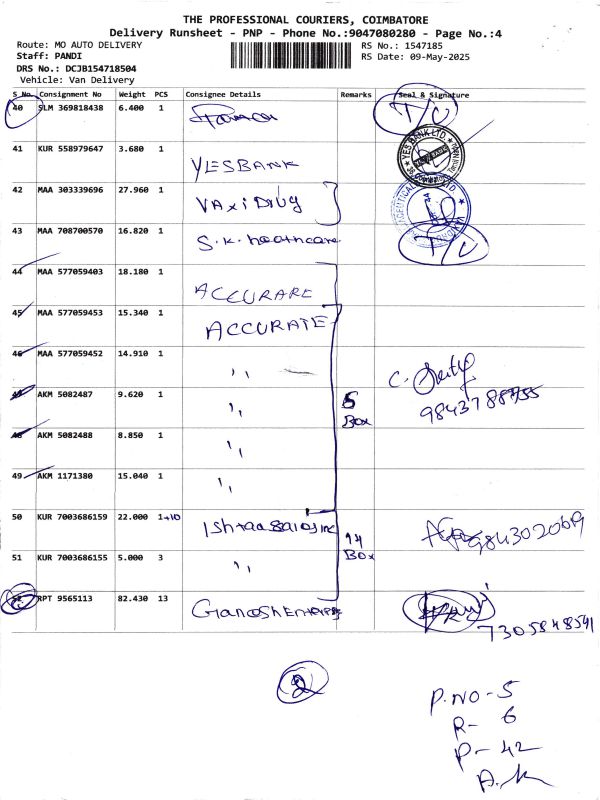 THE PROFESSIONAL COURIERS, COIMBATORE
Delivery Runsheet - PNP - Phone No.:9047080280 - Page No.:4
Route: MO AUTO DELIVERY
RS No.: 1547185
Staff: PANDI
RS Date: 09-May-2025
DRS No.: DCJB154718504
Vehicle: Van Delivery
S No. Consignment No Weight PCS Consignee Details Remarks Seal & Signature
40 SLM 369818438 6.400 1 T/C
41 KUR 558979647 3.680 1 YESBANK YES BANK LTD
42 MAA 303339696 27.960 1
43 MAA 708700570 16.820 1 S.K. heathcare T/C
44 MAA 577059403 18.180 1 ACCURARE
45 MAA 577059453 15.340 1 ACCURATE
46 MAA 577059452 14.910 1 ,, C.
47 AKM 5082487 9.620 1 ,, 5 Box
48 AKM 5082488 8.850 1 ,,
49 AKM 1171380 15.040 1 ,,
50 KUR 7003686159 22.000 1+10 14 Box 984302069
51 KUR 7003686155 5.000 3 ,,
52 RPT 9565113 82.430 13 7305848591
2
P.NO-5
R- 6
P-42